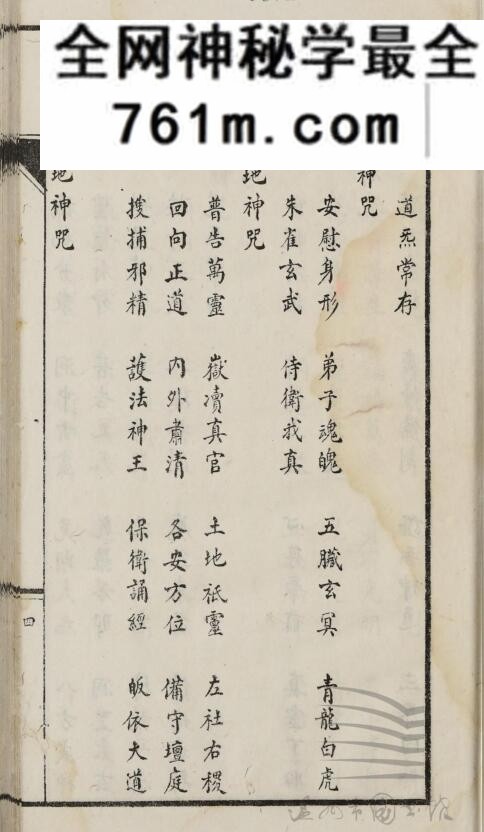 全网神秘学最全
761m.com
道炁常存
神咒
安慰身形 弟子魂魄 五臟玄冥 青龍白虎
朱雀玄武 侍衛我真
地神咒
普告萬靈 嶽凟真官 土地祇靈 左社右稷
回向正道 內外肅清 各安方位 備守壇庭
搜捕邪精 護法神王 保衛誦經 皈依大道
地神咒
四